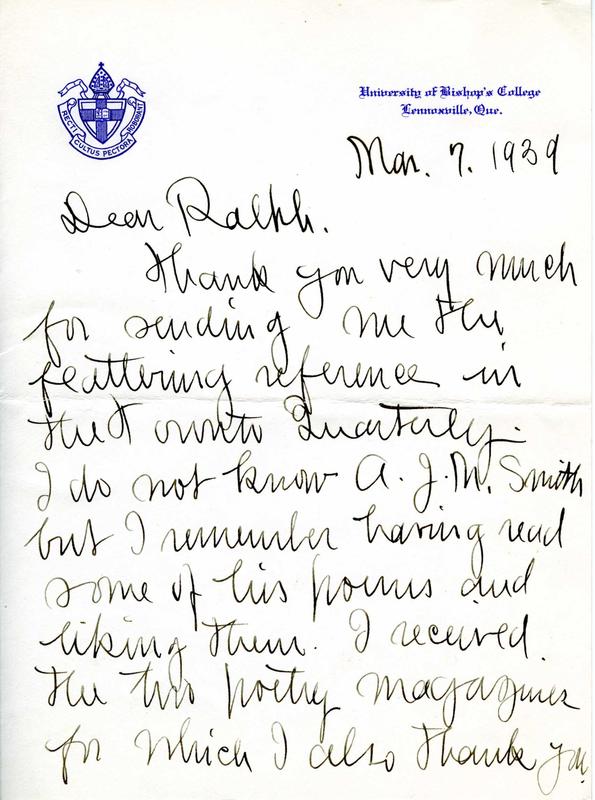 RECTI CULTUS PECTORA ROBORANT
University of Bishop's College
Lennoxville, Que.
Mar. 7. 1939
Dear Ralph.
Thank you very much
for sending me the
flattering reference in
the Toronto Quarterly.
I do not know A. J. M. Smith
but I remember having read
some of his poems and
liking them. I received
the two poetry magazines
for which I also thank you.